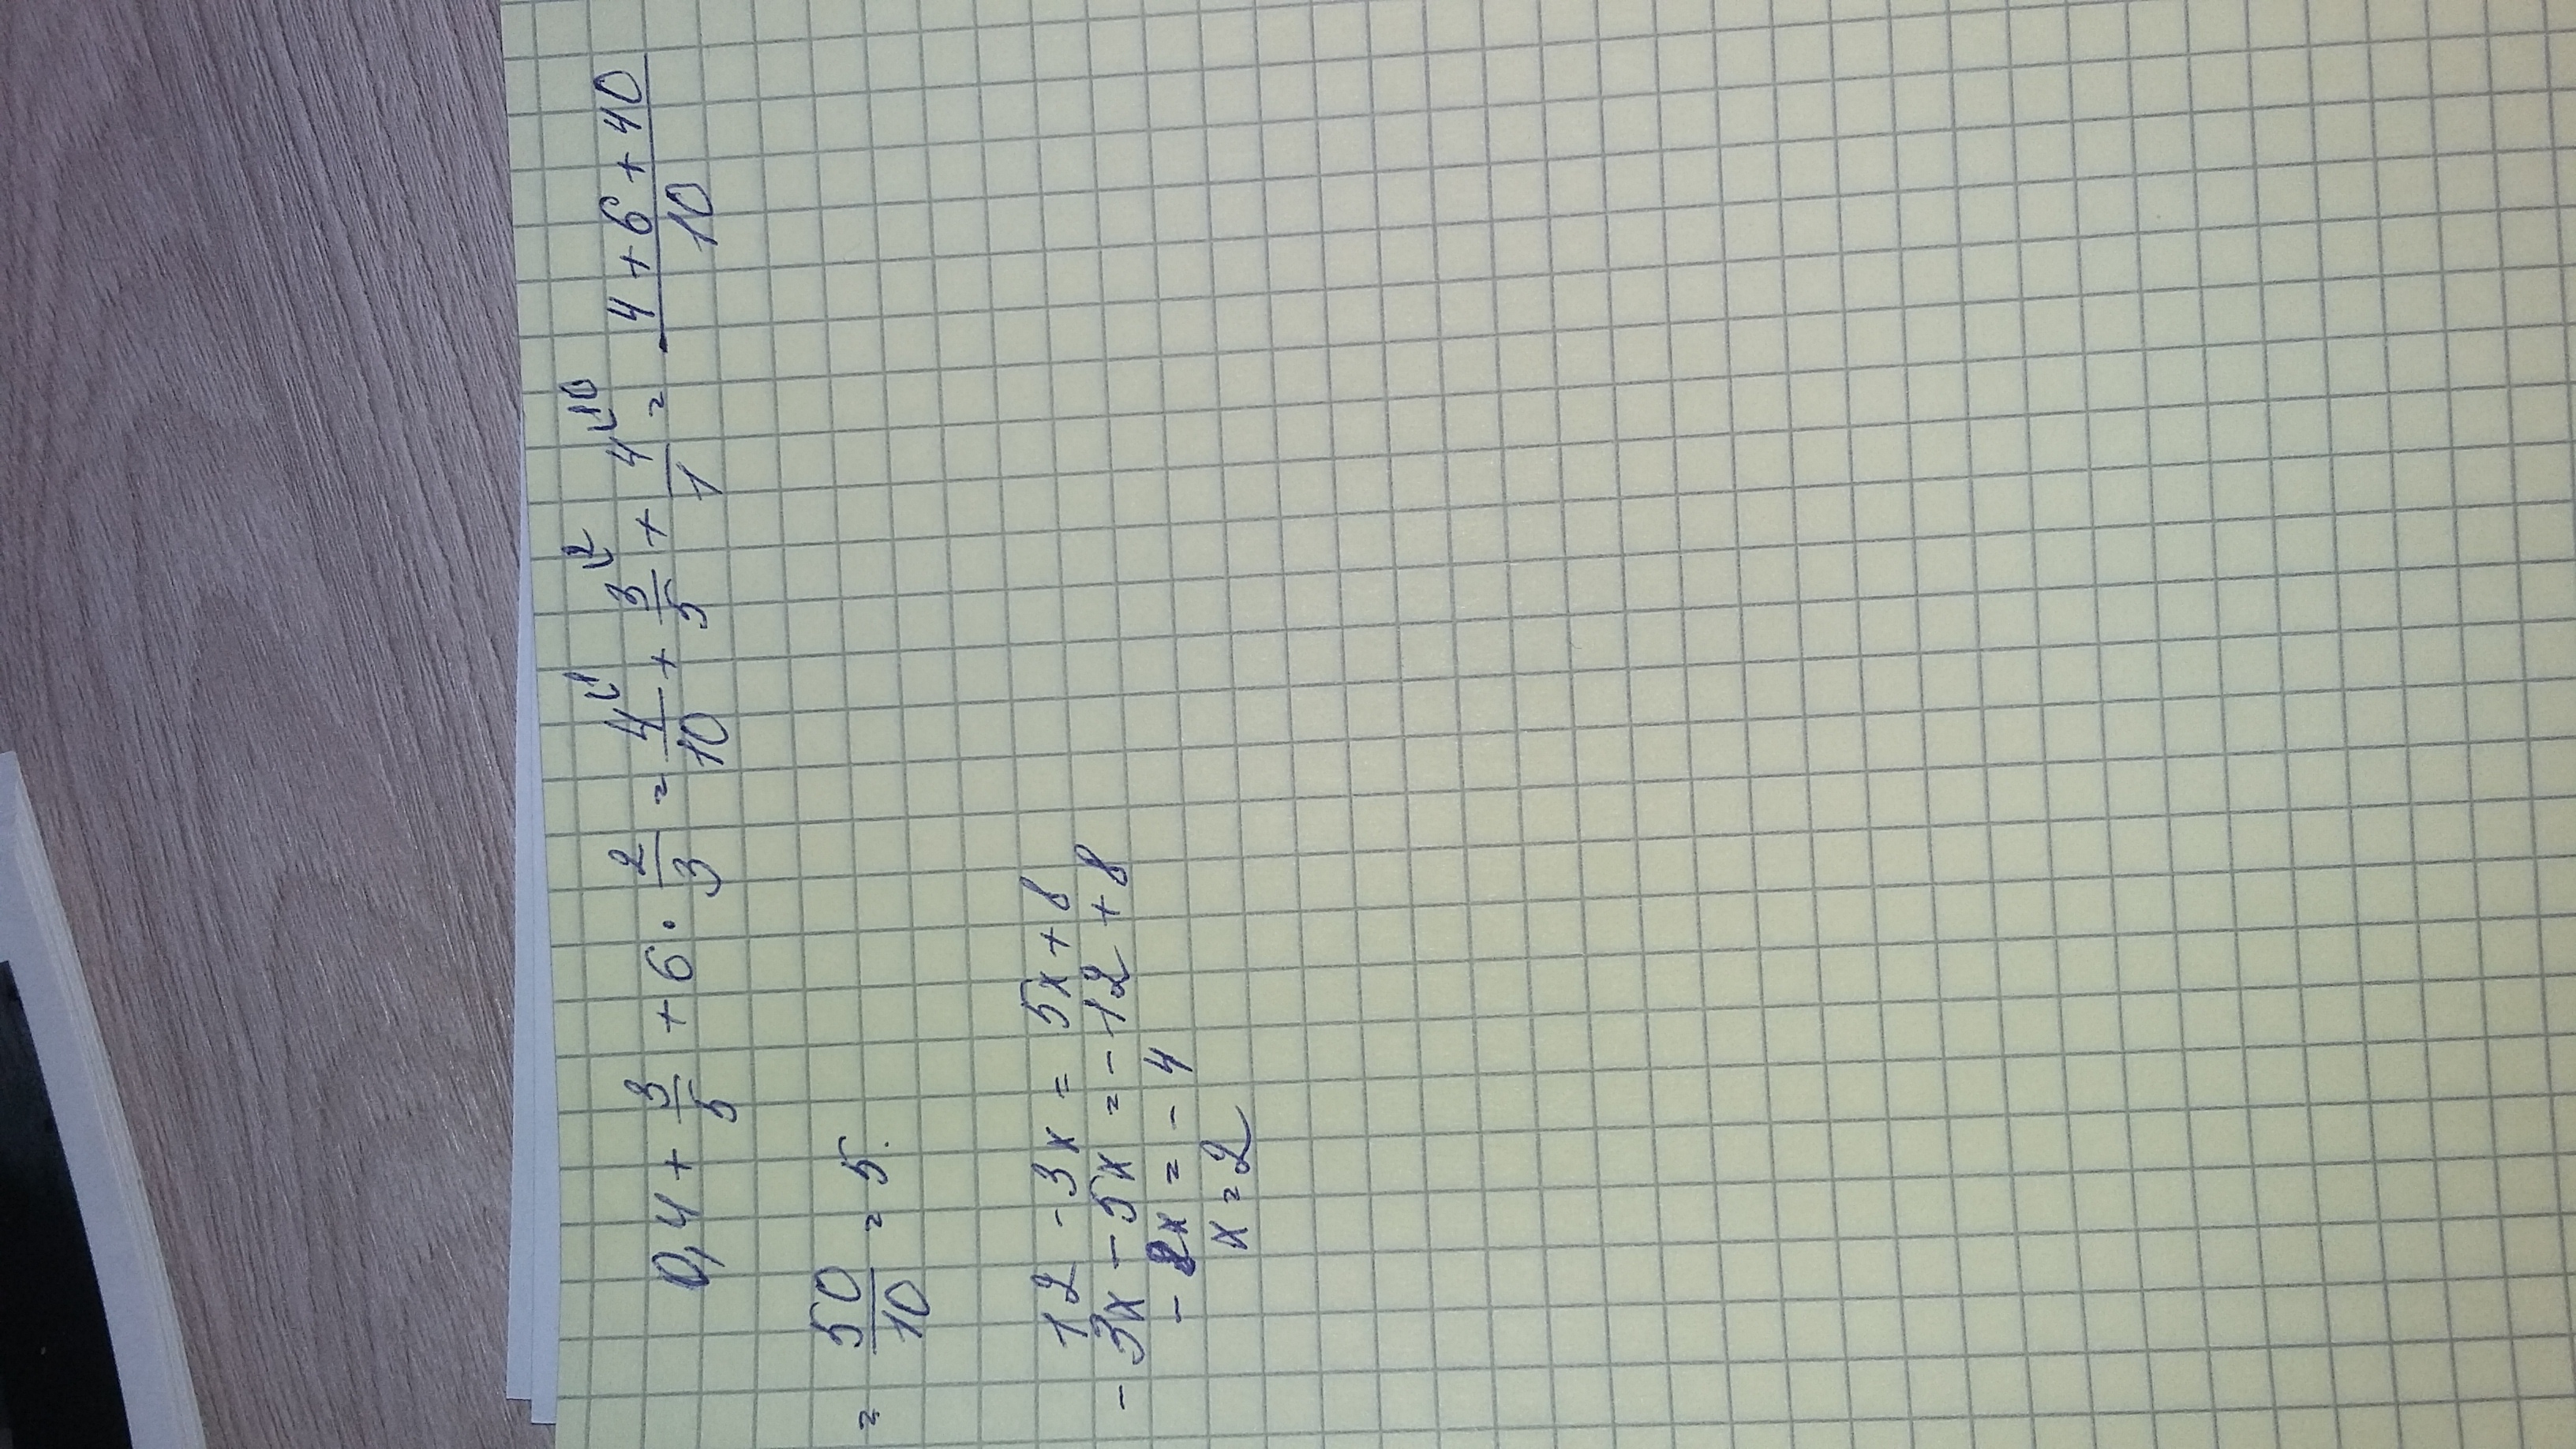 0,4 + 3/5 + 6 · 2/3 = 4/10 ⌊1 + 3/5 ⌊2 + 4/1 ⌊10 = (4 + 6 + 40)/10
= 50/10 = 5.
12 - 3x = 5x + 8
- 3x - 5x = - 12 + 8
- 8x = - 4
x = 2